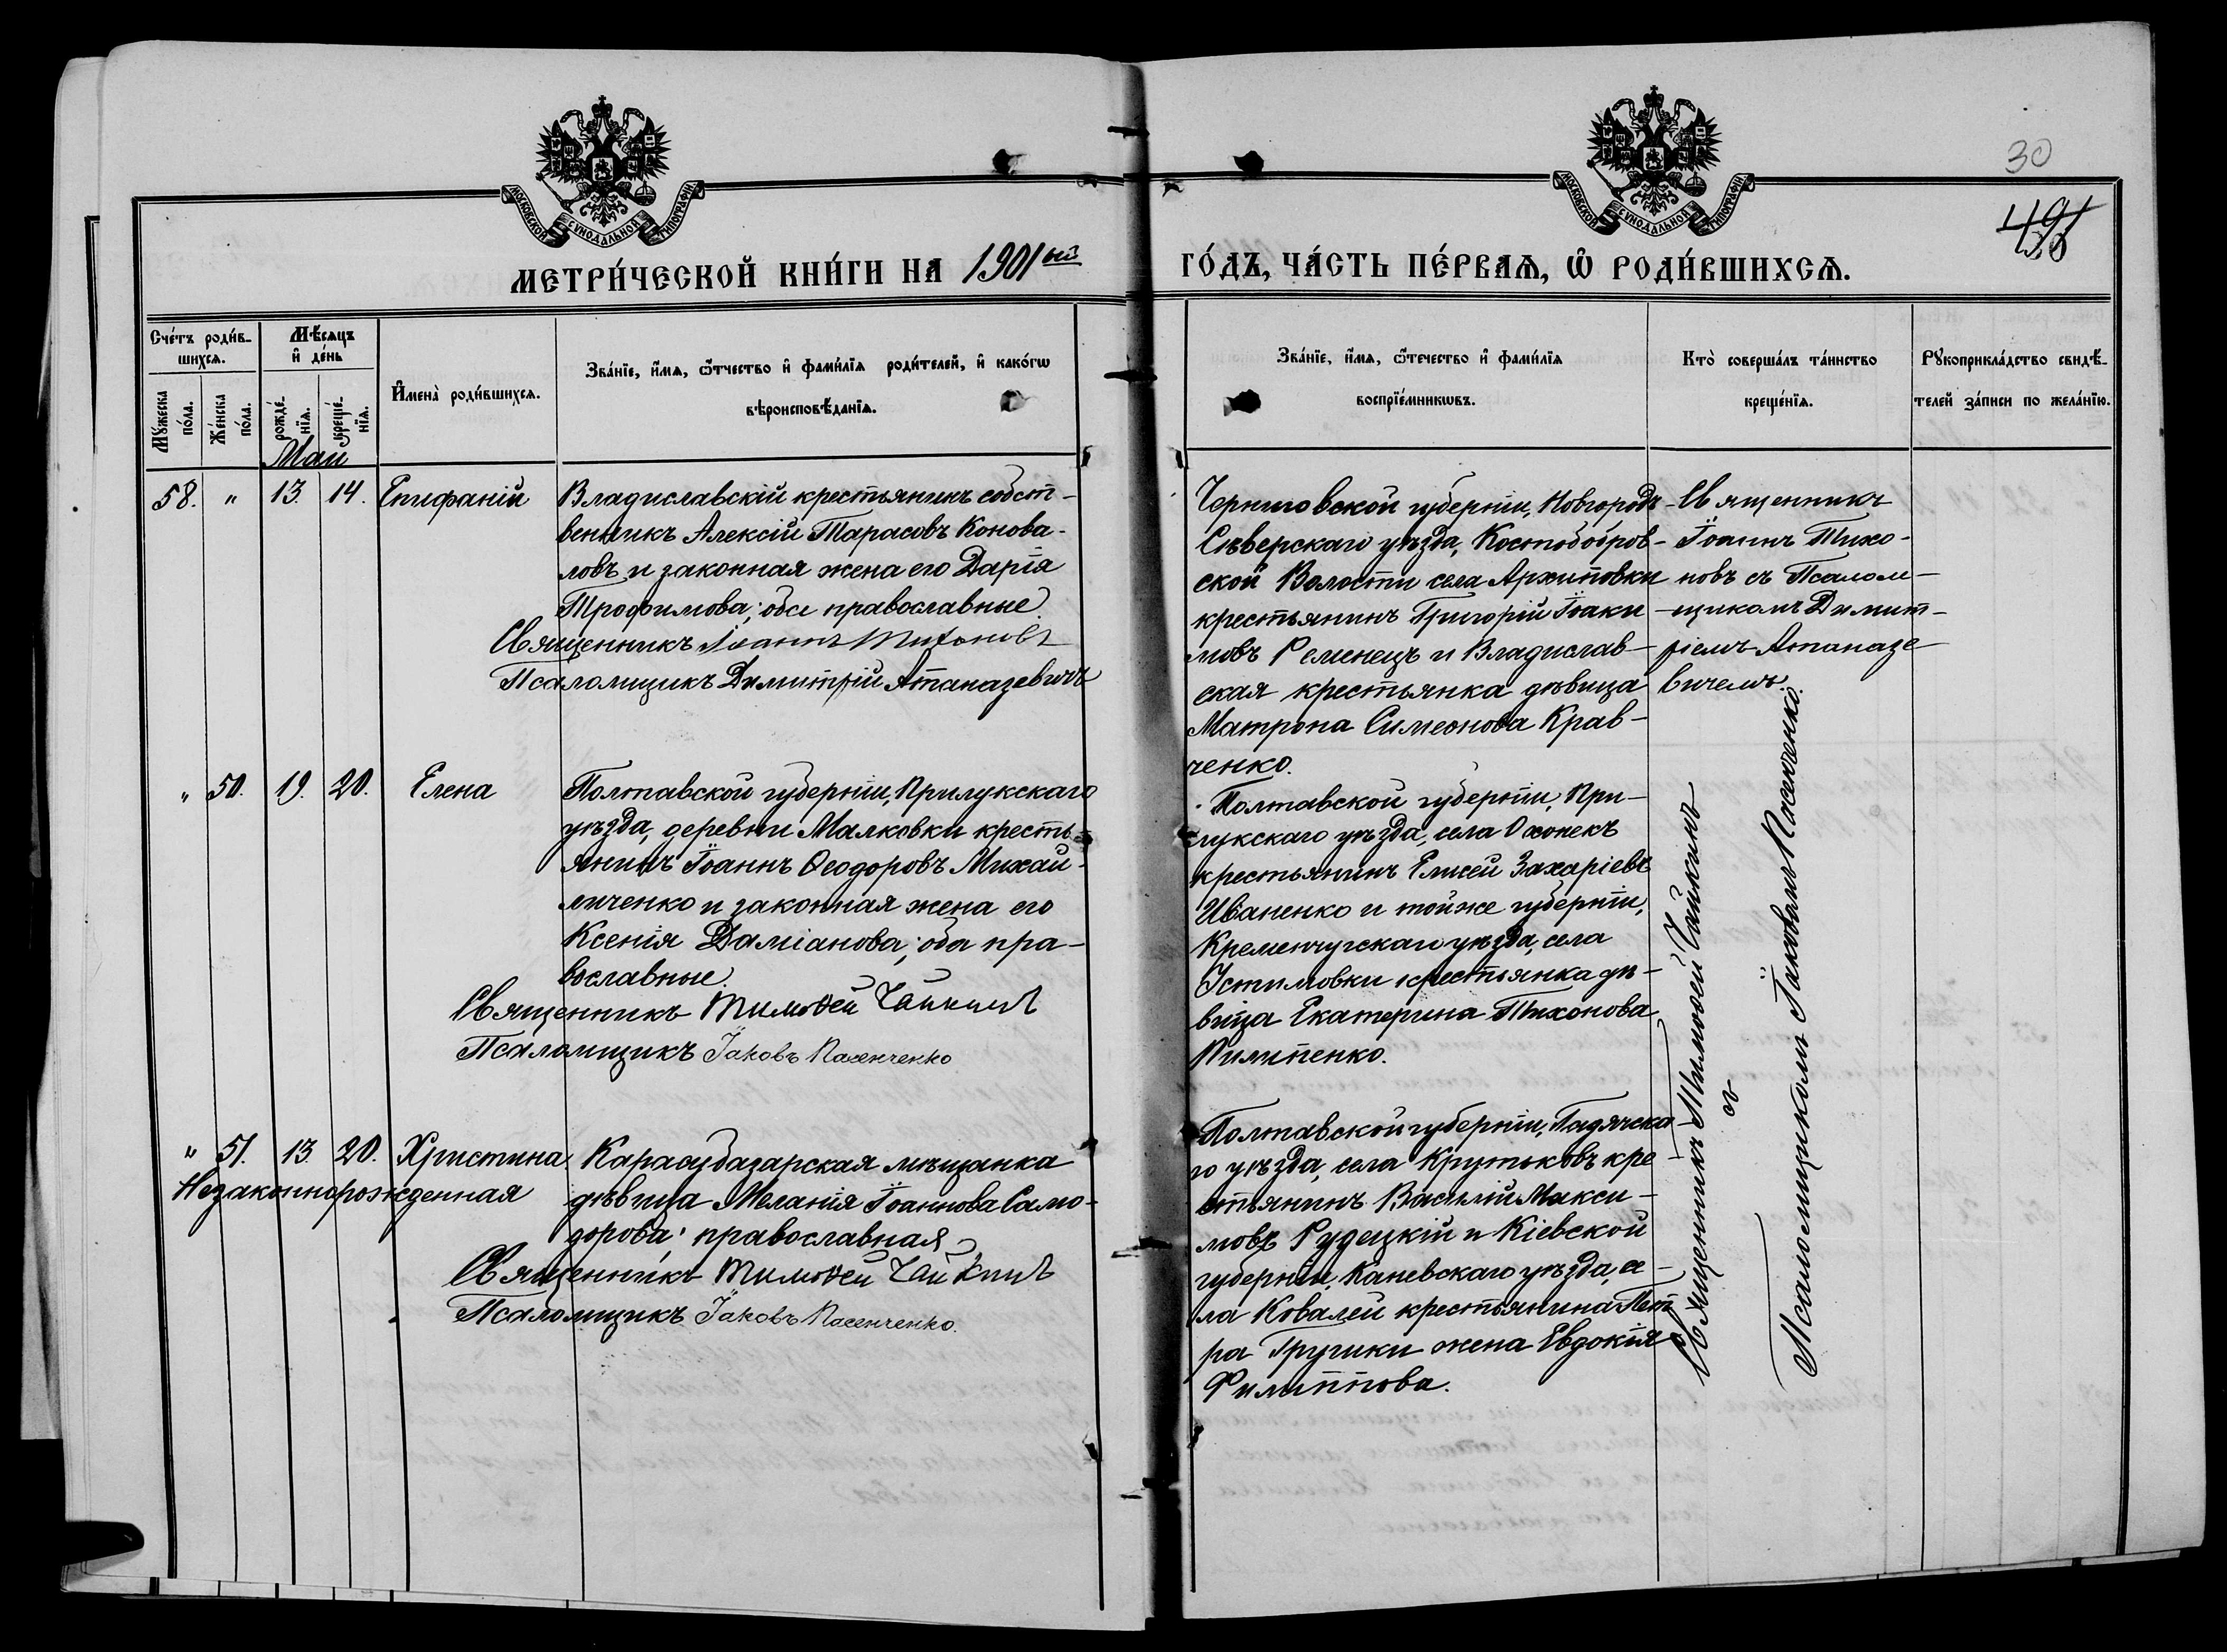 МОСКОВСКОЙ СѴНОДАЛЬНОЙ ТИПОГРАФІИ
МОСКОВСКОЙ СѴНОДАЛЬНОЙ ТИПОГРАФІИ
30
МЕТРИ́ЧЕСКОЙ КНИ́ГИ НА 1901ый
ГО́ДЪ, ЧА́СТЬ ПЕ́РВАѦ, Ѡ҆ РОДИ́ВШИХСѦ.
Сче́тъ роди́в-
шихсѧ.
Мꙋ́жеска по́ла.
Же́нска по́ла.
Мѣ́сѧцъ
и҆ де́нь
рожде́-
нїѧ.
креще́-
нїѧ.
И҆мена̀ роди́вшихсѧ.
Зва́нїе, и҆́мѧ, ѻ҆́тчество и҆ фами́лїѧ роди́телей, и҆ како́гѡ
вѣроисповѣ́данїѧ.
Зва́нїе, и҆́мѧ, ѻ҆́течество и҆ фами́лїѧ
воспрїе́мникѡвъ.
Кто̀ соверша́лъ та́инство
креще́нїѧ.
Рꙋкоприкла́дство свидѣ́-
телей за́писи по жела́нїю.
Май
58. " 13. 14. Епифаній
Владиславскій крестьянинъ собст-
венникъ Алексій Тарасовъ Конова-
ловъ и законная жена его Дарія
Трофимова; обе православные
Священникъ Іоаннъ Тихоновъ
Псаломщикъ Димитрій Атаназевичъ
Черниговской губерніи, Новгородъ-
Сѣверскаго уѣзда, Костобобров-
ской Волости села Архиповки
крестьянинъ Григорій Іоаки-
мовъ Ременецъ и Владислав-
ская крестьянка дѣвица
Матрона Симеонова Крав-
ченко.
Священникъ
Іоаннъ Тихо-
новъ съ Псалом-
щикомъ Димит-
ріемъ Атаназе-
вичемъ.
" 50. 19. 20. Елена
Полтавской губерніи, Прилукскаго
уѣзда, деревни Малковки кресть-
янинъ Іоаннъ Ѳеодоровъ Михай-
личенко и законная жена его
Ксенія Даміанова; оба пра-
вославные.
Священникъ Тимоѳей Чайкинъ
Псаломщикъ Іаковъ Пасенченко
Полтавской губерніи, При-
лукскаго уѣзда, села Охонекъ
крестьянинъ Елисей Захаріевъ
Иваненко и тойже губерніи,
Кременчугскаго уѣзда, села
Устимовки крестьянка дѣ-
вица Екатерина Тихонова
Пилипенко.
Священникъ Тимоѳей Чайкинъ
съ
Псаломщикомъ Іаковомъ Пасенченко.
" 51. 13. 20. Христина
Незаконнорожденная
Карасубазарская мѣщанка
дѣвица Меланія Іоаннова Само-
дорова; православная
Священникъ Тимоѳей Чайкинъ
Псаломщикъ Іаковъ Пасенченко.
Полтавской губерніи, Гадячска-
го уѣзда, села Крутьковъ кре-
стьянинъ Василій Макси-
мовъ Рудецкій и Кіевской
губерніи, Каневскаго уѣзда, се-
ла Ковалей крестьянина Пет-
ра Гручики жена Евдокія
Филиппова.